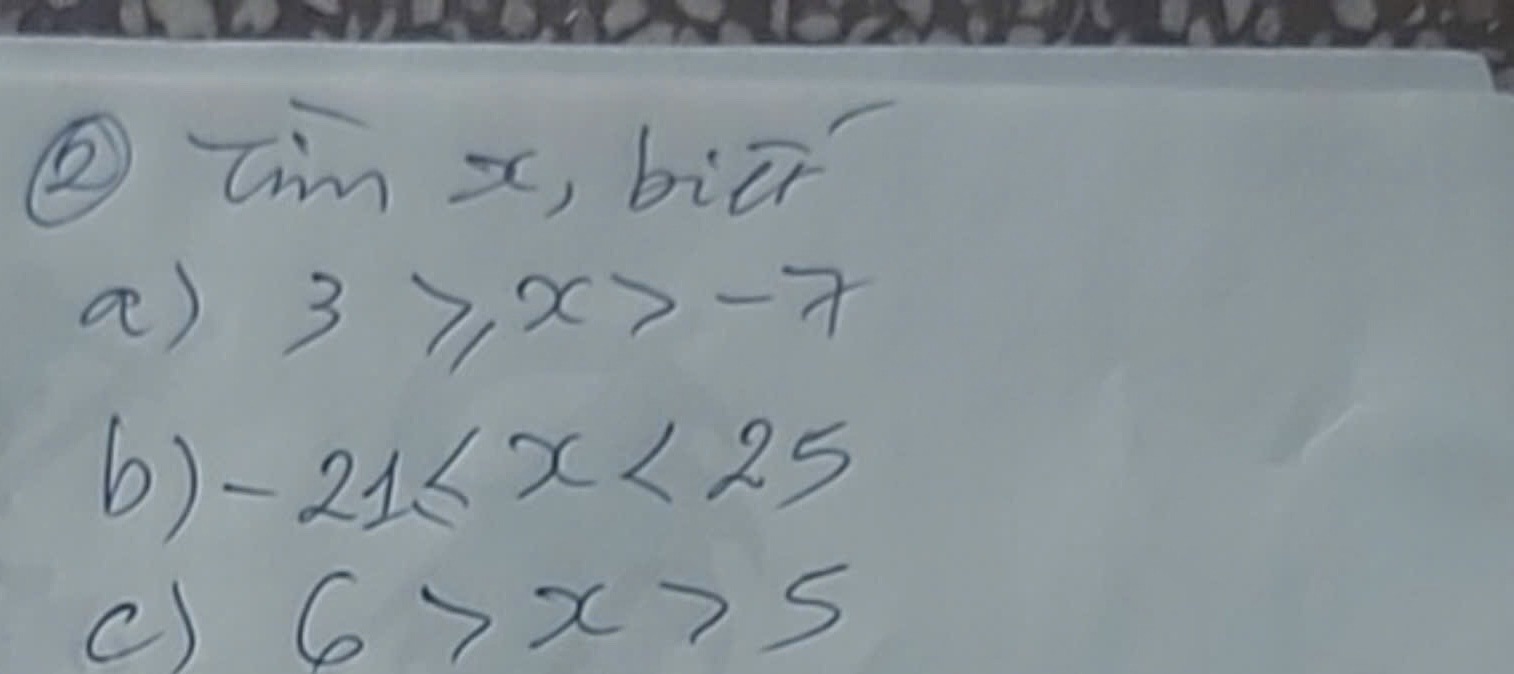 ② Tìm x, biết
a) 3 ⩾ x > -7
b) -21 ⩽ x < 25
c) 6 > x > 5